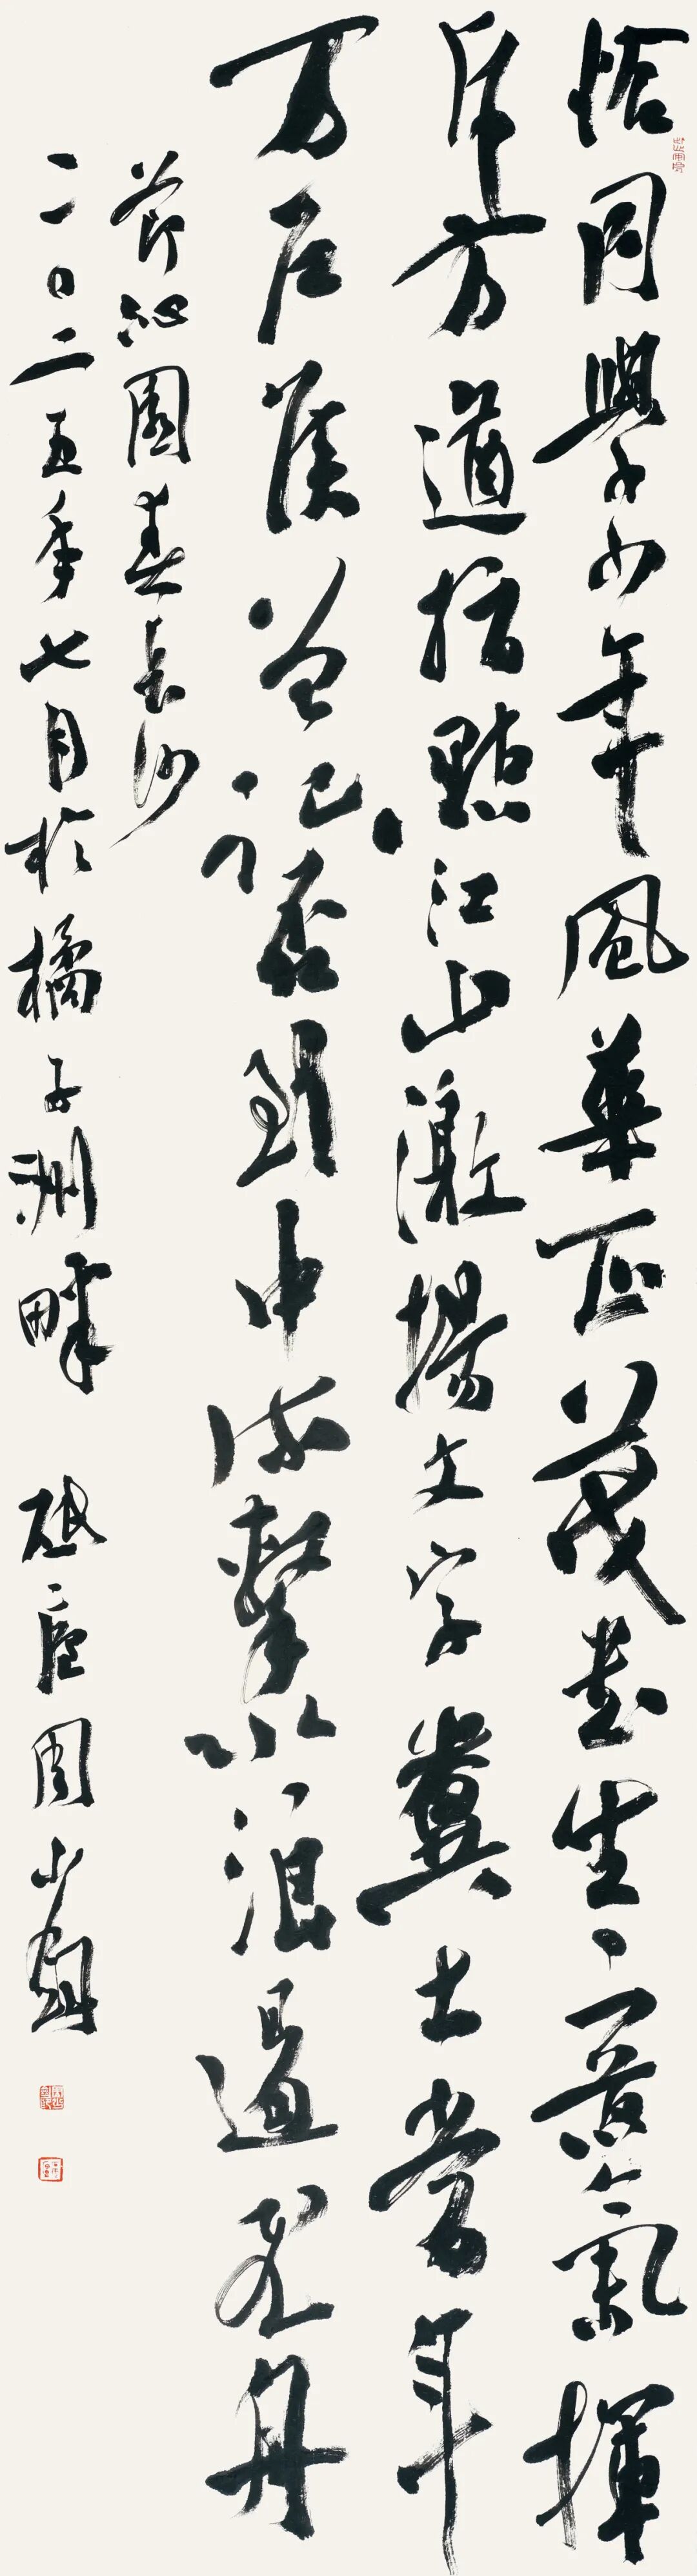 恰同學少年風華正茂書生意氣揮
斥方遒指點江山激揚文字糞土當年
万户侯曾記否到中流擊水浪遏飛舟
節沁園春長沙
二〇二五年七月於橘子洲畔 周